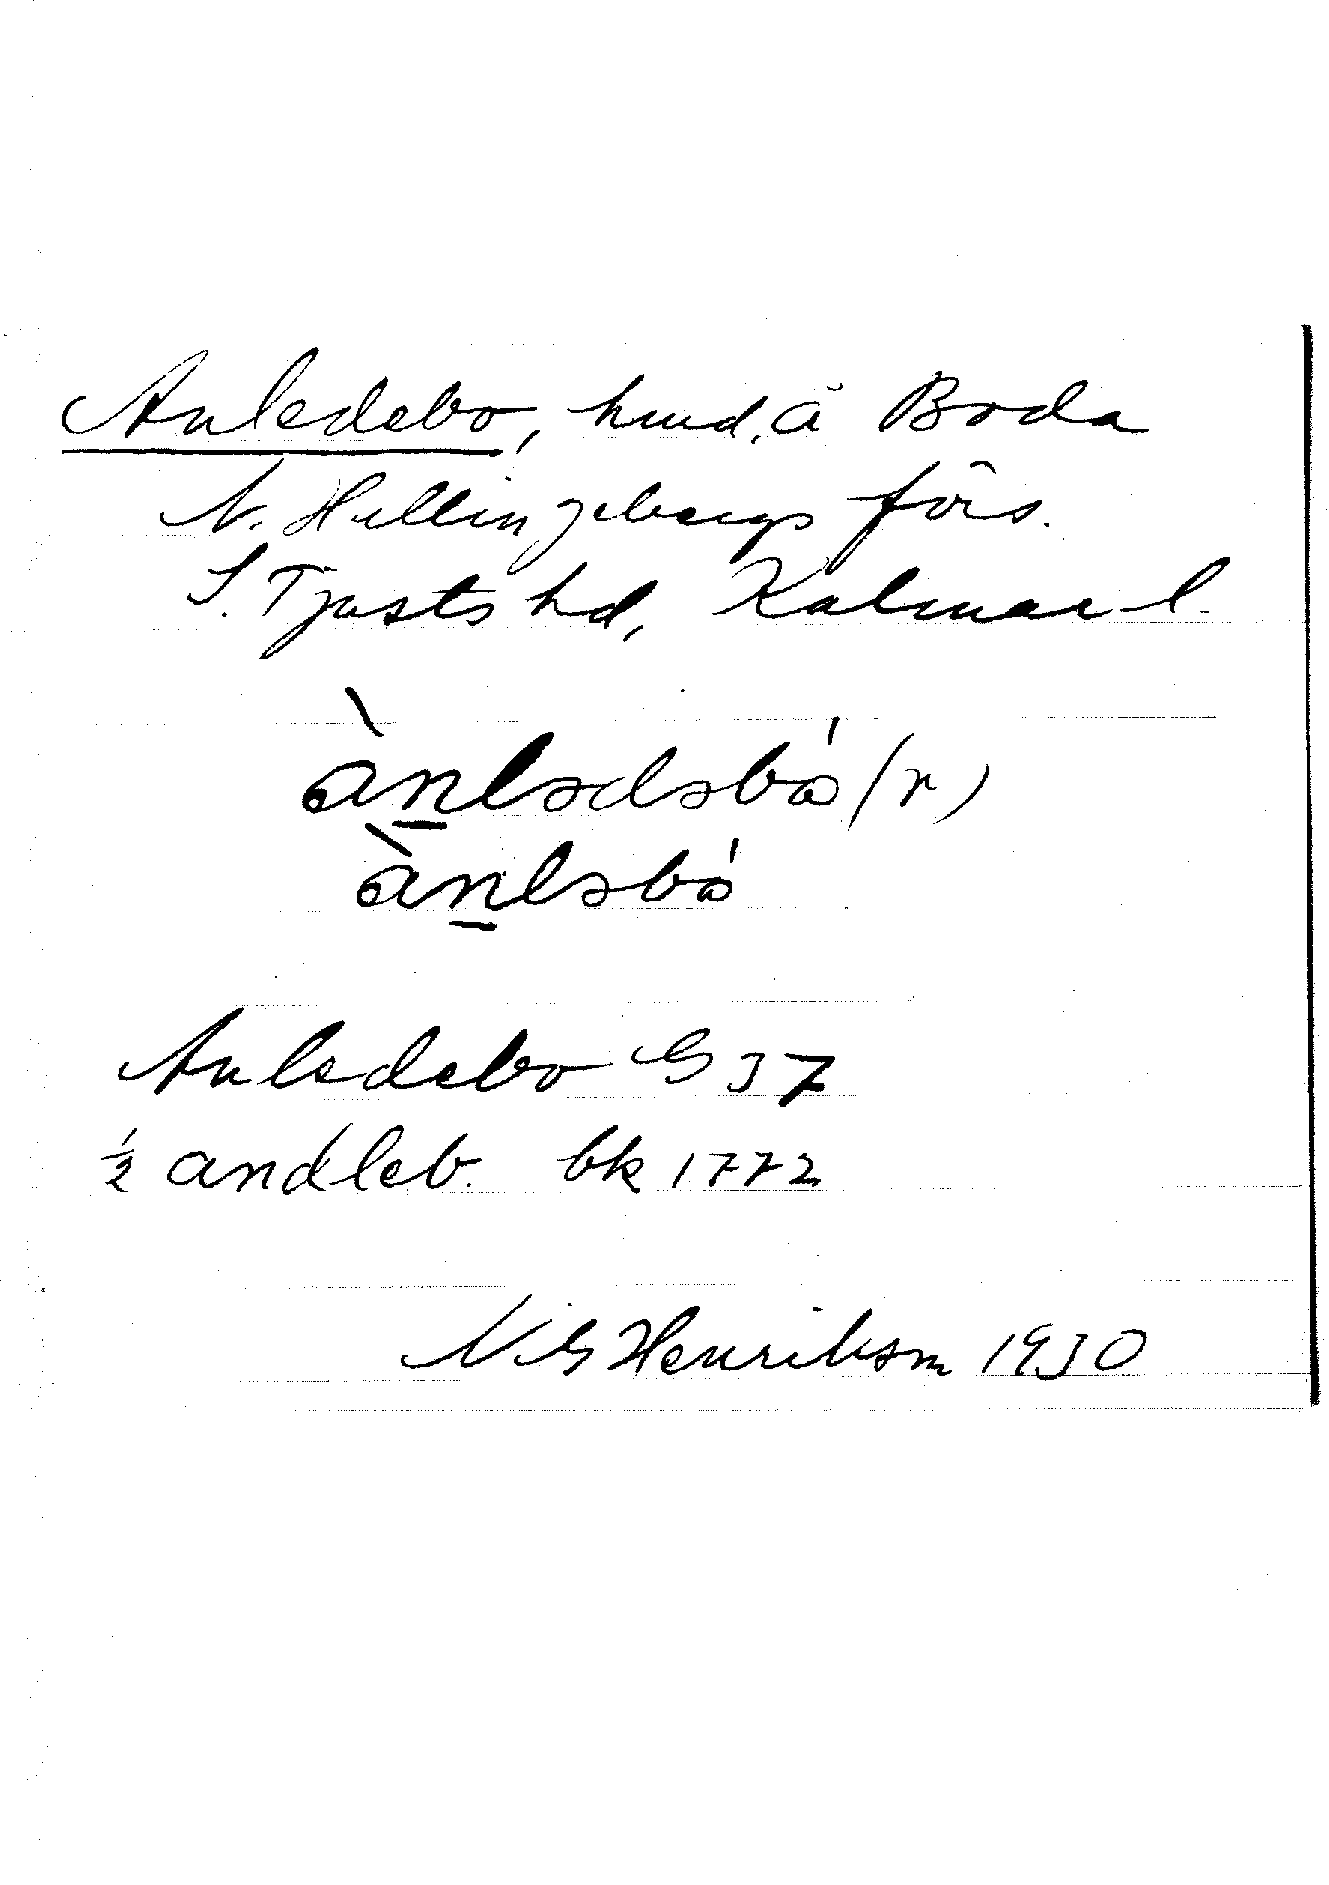 Anledebo, hmd. å Boda
N. Hellingebergs förs.
S. Tjusts hd, Kalmar l.
ànlədəbó/r)
ànləbó
Anledebo G 37
½ andleb. bk 1772
N. G Henrikson 1930